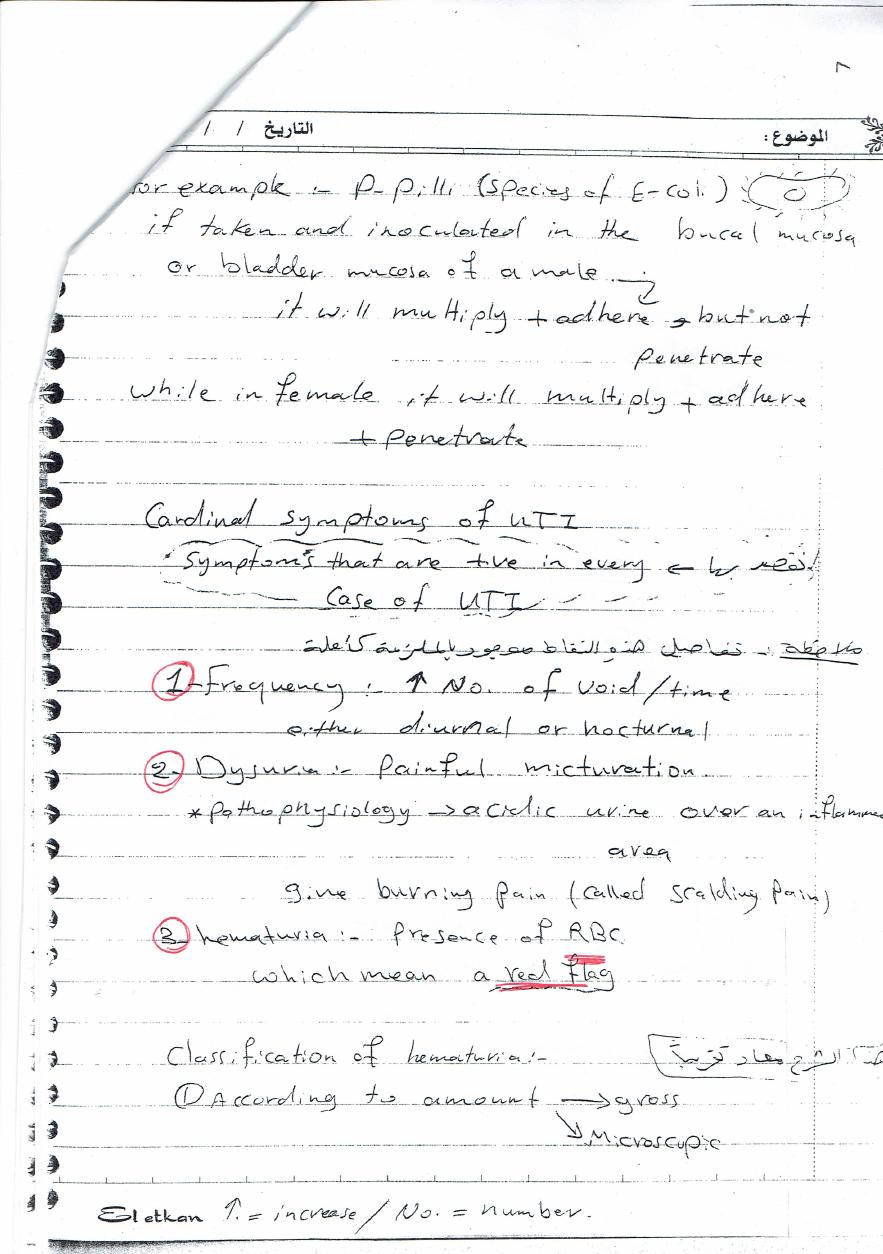 ٨
الموضوع: التاريخ / /
for example :- P-pilli (species of E-coli)
if taken and inoculated in the bucal mucosa
or bladder mucosa of a male
it will multiply + adhere but not
penetrate
while in female it will multiply + adhere
+ penetrate
Cardinal symptoms of UTI
Symptoms that are +ive in every ←
Case of UTI
ملاحظة :- تفاصيل هذه النقاط موجود بالملزمة كاملة
1- Frequency :- ↑ No. of void/time
either diurnal or nocturnal
2- Dysuria :- Painful micturation
* Pathophysiology → acidic urine over an inflamme
area
give burning pain (called scalding pain)
3- hematuria :- Presence of RBC
which mean a red flag
هذا الشرح معاد تقريباً
Classification of hematuria :-
① According to amount → gross
↘ Microscopic
Eletkan ↑. = increase / No. = number.